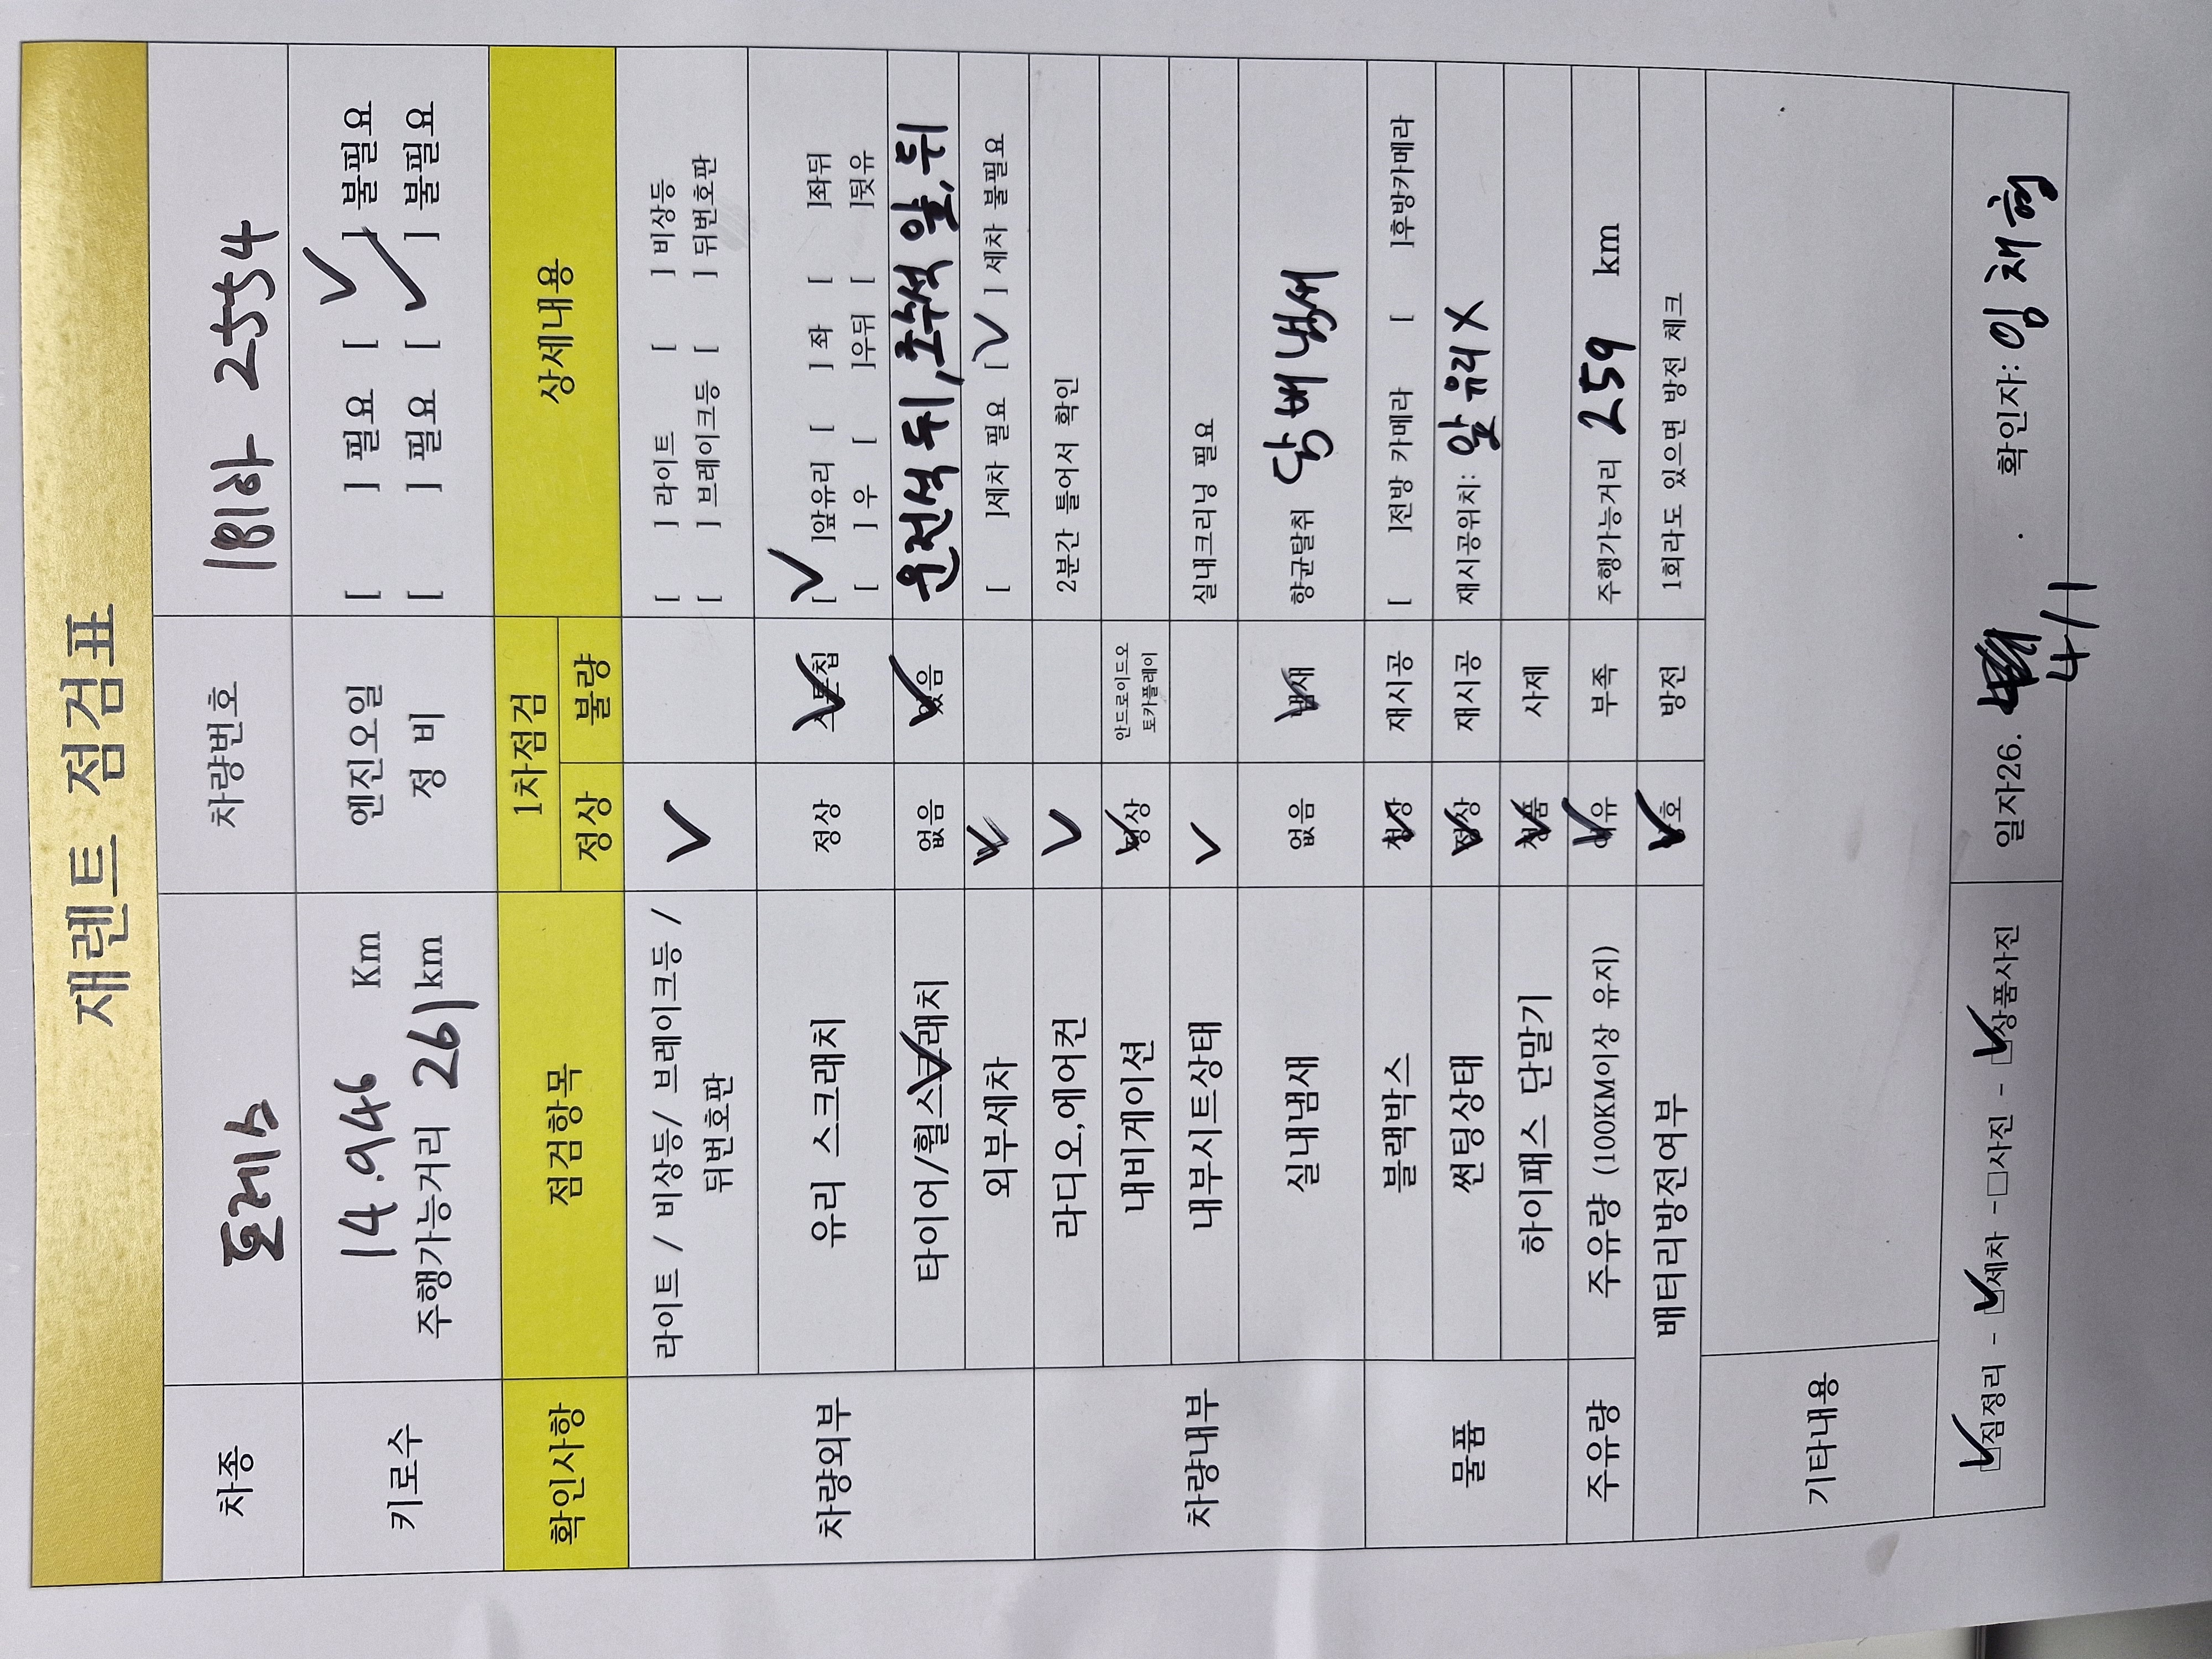 재렌트 점검표
차종 토레스 차량번호 181하 2554
키로수 14.946 Km 엔진오일 [ ] 필요 [ ✓ ] 불필요
주행가능거리 261 km 정 비 [ ] 필요 [ ✓ ] 불필요
확인사항 점검항목 1차점검 상세내용
정상 불량
차량외부 라이트 / 비상등/ 브레이크등 / ✓ [ ] 라이트 [ ] 비상등
뒤번호판 [ ] 브레이크등 [ ] 뒤번호판
유리 스크래치 정상 ✓ [✓ ]앞유리 [ ] 좌 [ ]좌뒤
[ ] 우 [ ]우뒤 [ ]뒷유
타이어/휠스크래치 없음 ✓있음 운전석 뒤, 조수석 앞, 뒤
외부세차 ✓ [ ]세차 필요 [ ✓ ] 세차 불필요
차량내부 라디오,에어컨 ✓ 2분간 틀어서 확인
내비게이션 ✓정상 안드로이드오
토카플레이
내부시트상태 ✓ 실내크리닝 필요
실내냄새 없음 ✓냄새 향균탈취 담배냄새
물품 블랙박스 ✓정상 재시공 [ ]전방 카메라 [ ]후방카메라
썬팅상태 ✓정상 재시공 재시공위치: 앞유리 X
하이패스 단말기 ✓정품 사제
주유량 주유량 (100KM이상 유지) ✓여유 부족 주행가능거리 259 km
배터리방전여부 ✓양호 방전 1회라도 있으면 방전 체크
기타내용
☑짐정리 - ☑세차 - □사진 - ☑상품사진 일자26. 4/1 . 확인자: 임채형